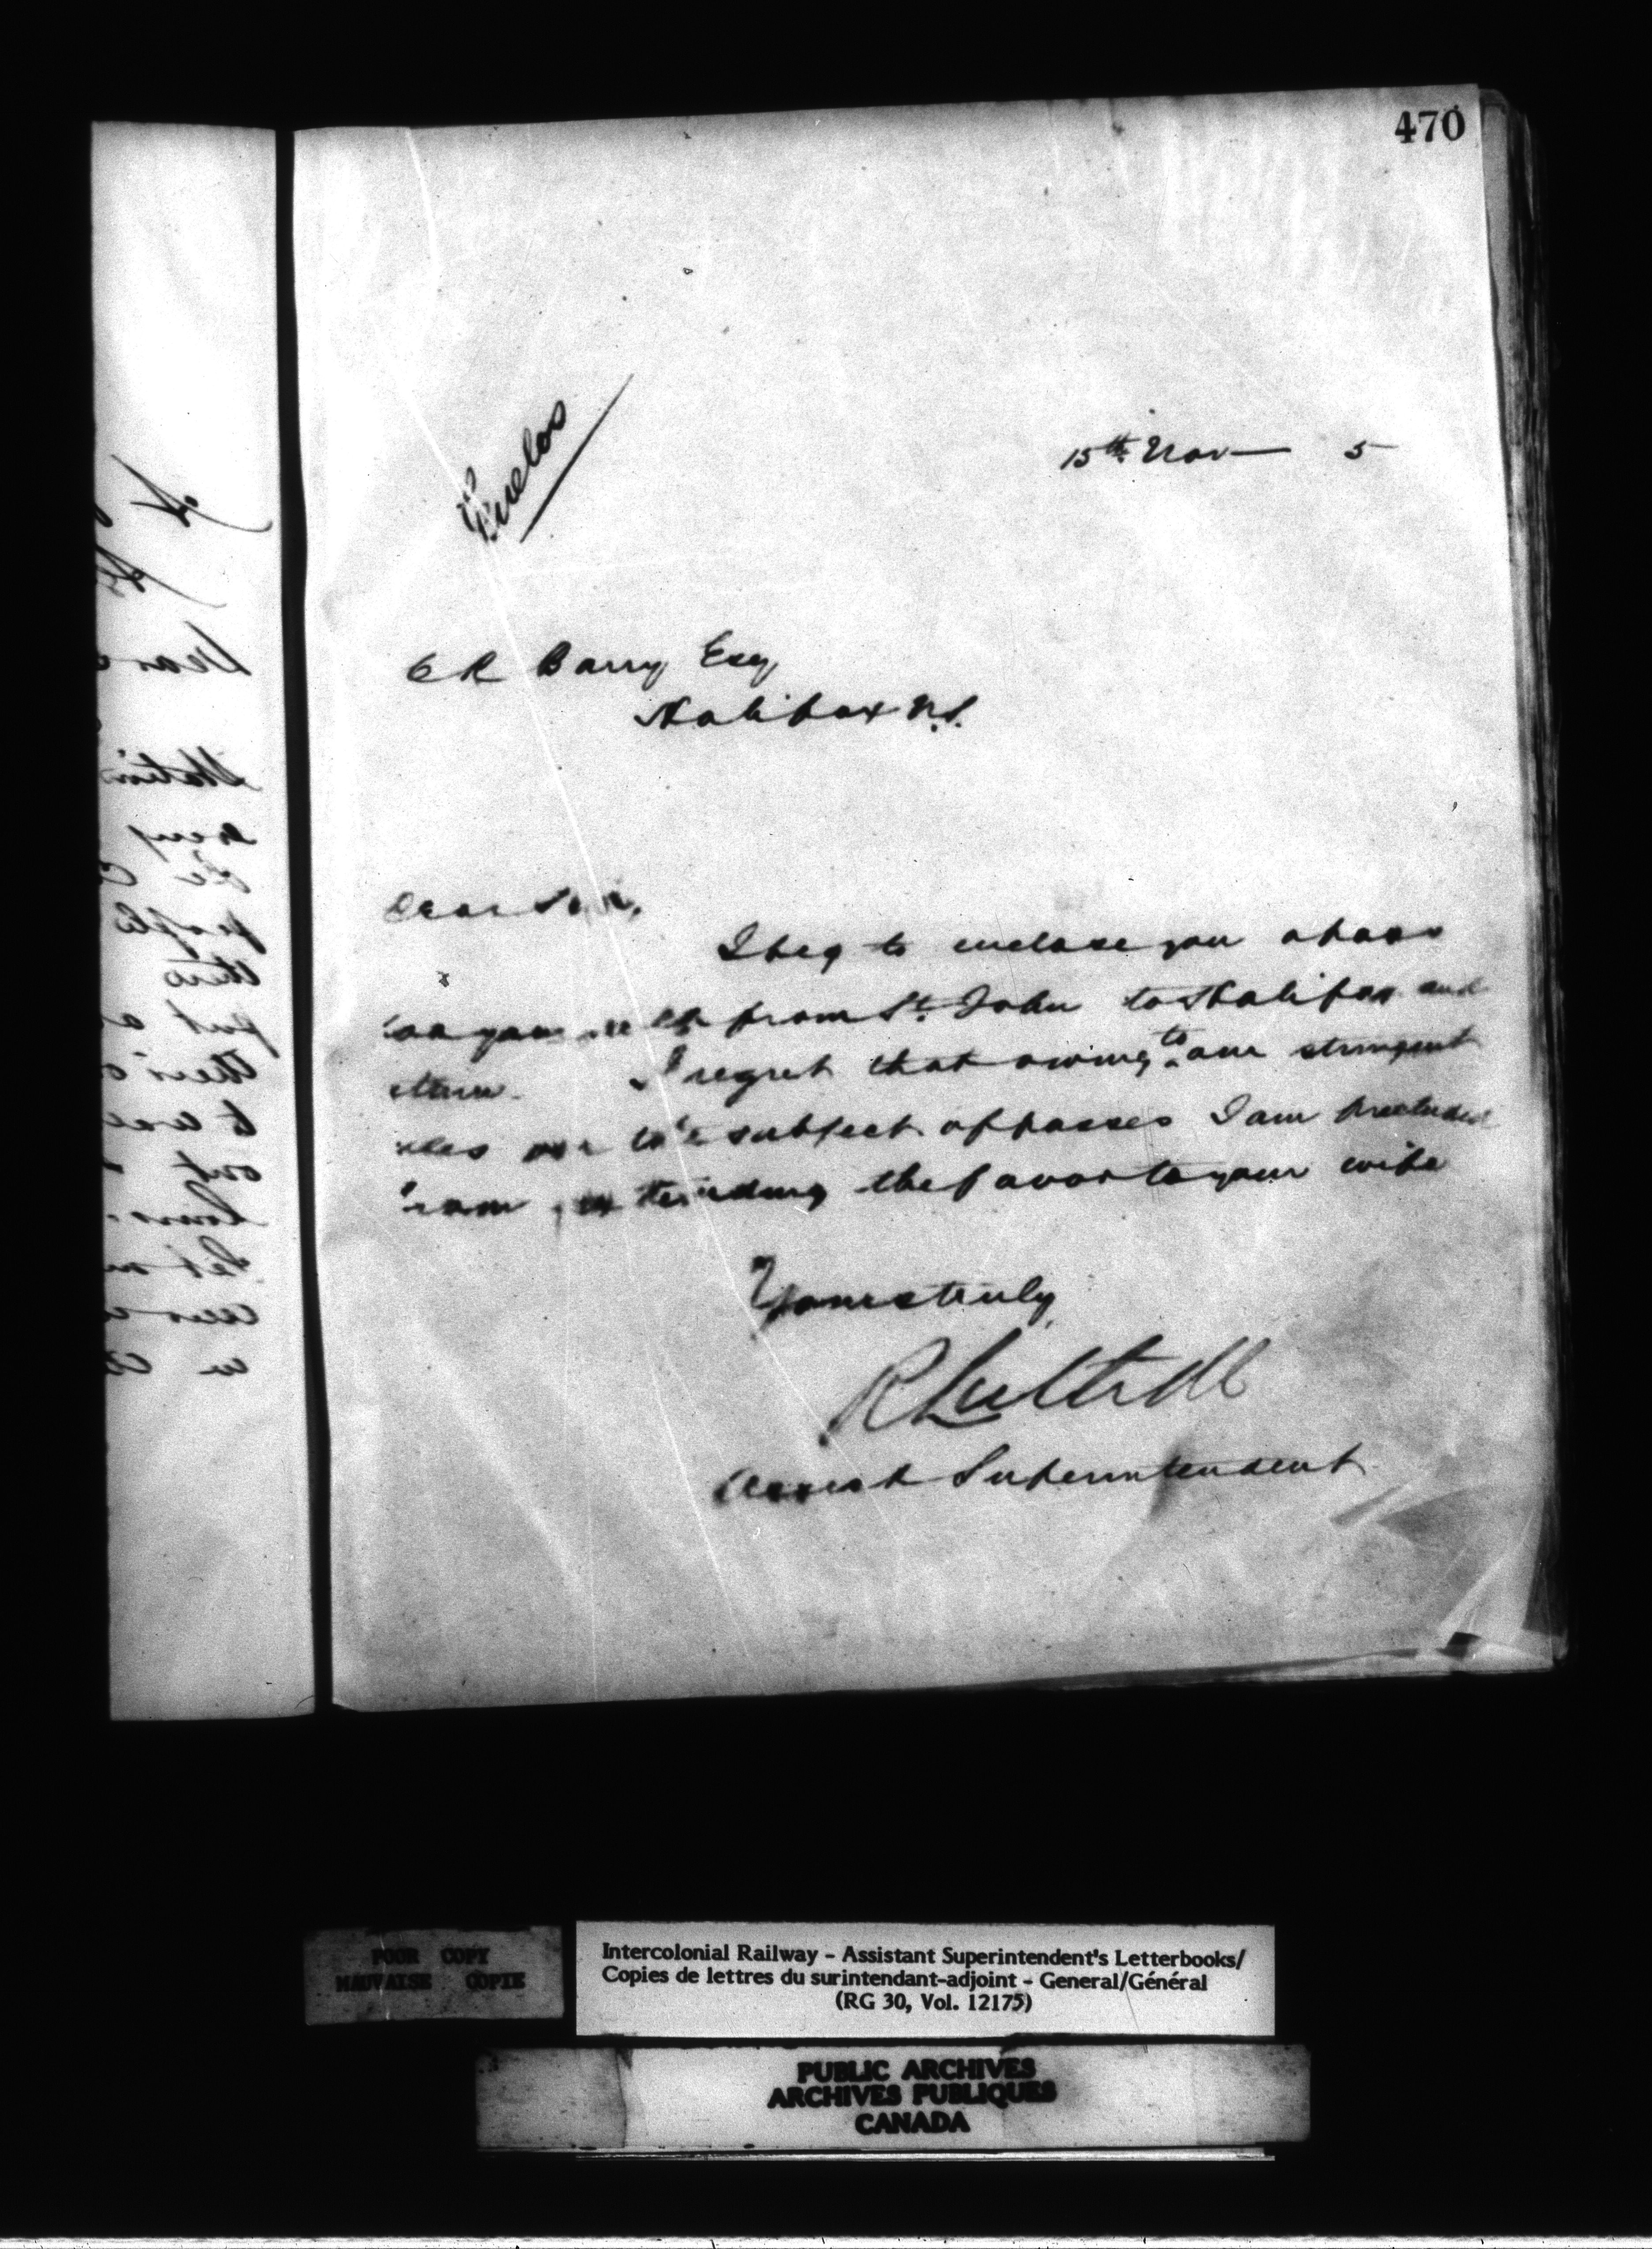 470
15th Nov 5
Enclos
C R Barry Esq
Halifax N.S.
Dear Sir,
I beg to enclose you a pass
for yourself from St. John to Halifax and
return. I regret that owing to our stringent
rules on the subject of passes I am precluded
from extending the favor to your wife
Yours truly
R Luttrell
Assist Superintendent
POOR COPY
MAUVAISE COPIE
Intercolonial Railway - Assistant Superintendent's Letterbooks/
Copies de lettres du surintendant-adjoint - General/Général
(RG 30, Vol. 12175)
PUBLIC ARCHIVES
ARCHIVES PUBLIQUES
CANADA